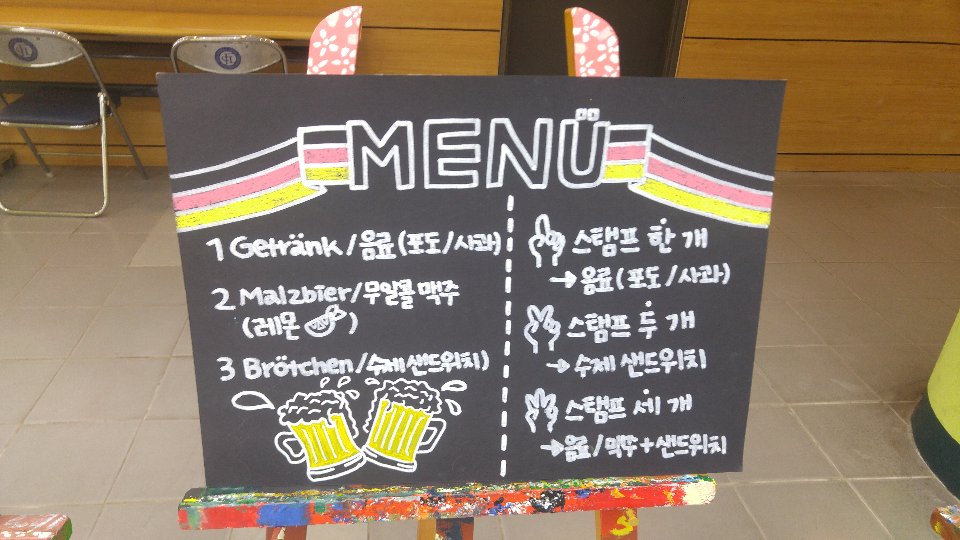 MENÜ
1 Getränk/음료(포도/사과)
2 Malzbier/무알콜 맥주
(레몬)
3 Brötchen/수제 샌드위치)
스탬프 한 개
→음료(포도/사과)
스탬프 두 개
→수제 샌드위치
스탬프 세 개
→음료/맥주+샌드위치